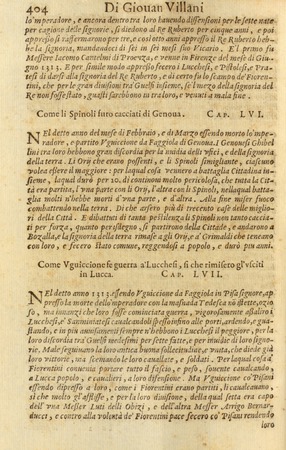 404 Di Giouan Villani
lo'mperadore, e ancora dentro tra loro hauendo dissensioni per le sette nate
per cagione delle signorie, si diedono al Re Ruberto per cinque anni, e poi
appresso il raffermaro per tre, e costette anni appresso il Re Ruberto heb-
be la signoria, mandandoci di sei in sei mesi suo Vicario. El primo fu
Messere Iacomo Cantelmi di Proenza, e venne in Firenze del mese di Giu-
gno 1313. E per simile modo poco appresso feciono i Lucchesi, e Pistolesi, e Pra-
tesi di darsi alla signoria del Re Ruberto, e di certo fu lo scampo de Fioren-
tini, che per le gran diuisioni tra' Guelfi insieme, se'l mezzo della signoria del
Re non fosse stato, guasti sarebbono tra loro, e venuti a mala fine.
Come li Spinoli furo cacciati di Genoua. CAP. LVI.
NEl detto anno del mese di Febbraio, e di Marzo essendo morto lo'mpe-
radore, e partito Vguiccione da Faggiuola di Genoua. I Genouesi Ghibel
lini tra loro hebbono gran discordia per la inuidia delli vficj, e della signoria
della terra. Li Orij che erano possenti, e li Spinoli simigliante, ciascuno
volea essere il maggiore: per laqual cosa vennero a battaglia Cittadina in-
sieme, laqual durò per 20. dì continoui molto pericolosa, che tutta la Cit-
tà era partita, l'vna parte con li Orij, e l'altra con li Spinoli, nella qual batta-
glia molti n'hebbe morti d'vna parte, e d'altra. Alla fine misser fuoco
combattendo nella terra. Di che arsero più di trecento case delle miglio-
ri della Città. E dibattuti di tanta pestilenza li Spinoli non tanto caccia-
ti per forza, quanto per isdegno, si partirono della Cittade, e andarono a
Bozalla, e la signoria della terra rimase agli Orij, e a' Grimaldi che tenearo
con loro, e fecero stato comune, reggendosi a popolo, e durò più anni.
Come Vguiccione fe guerra a' Lucchesi, sì che rimisero gl'vsciti
in Lucca. CAP. LVII.
NEl detto anno 1313. essendo Vguiccione da Faggiola in Pisa signore, ap-
presso la morte dello'mperadore con la masnada Tedesca nō istette, ozio-
so, ma innanzi che loro fosse cominciata guerra, rigorosamente assalirò i
Lucchesi, e' Samminiatesi caualcando ispesso insino alle porti, ardendo, e gua-
stando, e in più auuisamenti sempre n'hebbono i Lucchesi il peggiore, per la
loro discordia tra Guelfi medesimi per sette fatte, e per inuidie di loro signo-
rie. Male seguiuano la loro antica buona sollecitudine, e vnità, che diede già
loro vittorie, ma scemando le loro caualcate, e soldati. Per laqual cosa a'
Fiorentini conuenia portare tutto il fascio, e peso, souente caualcando
a Lucca popolo, e caualieri, a loro difensione. Ma Vguiccione co' Pisani
essendo dipresso a loro, come i Fiorentini erano partiti, li caualcauano,
sì che molto gl'afflisse, e per la loro diuisione, della qual setta era capo
dell'vna Messer Luti delli Obizi, e dell'altra Messer Arrigo Bernar-
ducci, e contro alla volontà de' Fiorentini pace fecero co' Pisani rendendo
loro